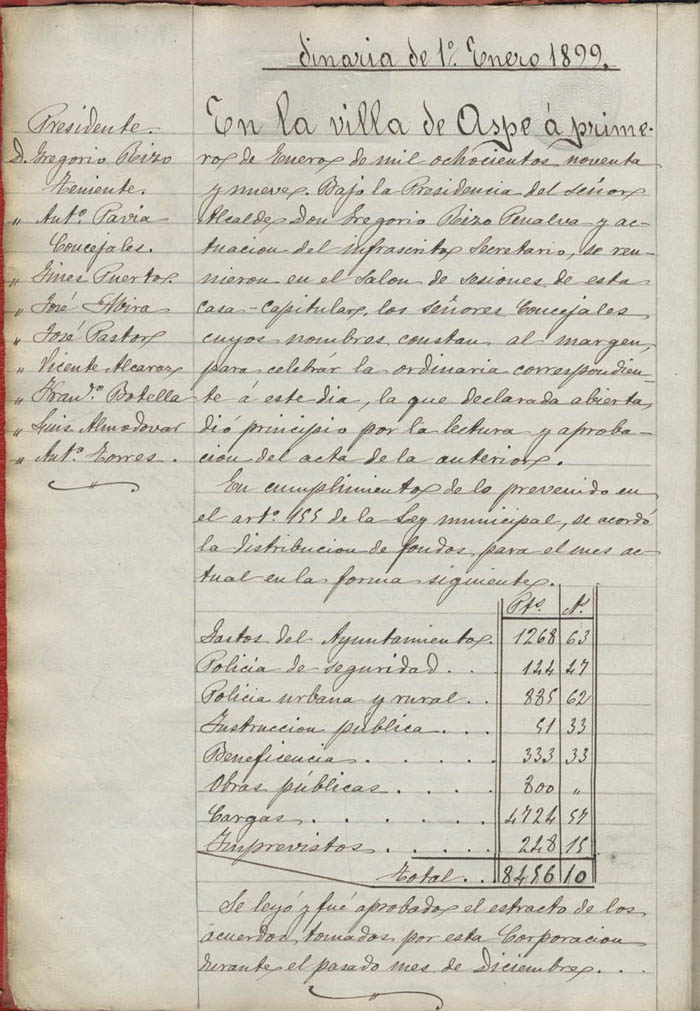 dinaria de 1º Enero 1899.
Presidente.
D. Gregorio Rizo
Teniente.
„ Antº Pavia
Concejales.
„ Gines Puerto.
„ José Mira
„ José Pastor
„ Vicente Alcaraz
„ Franº Botella
„ Luis Almodovar
„ Antº Torres.
En la villa de Aspe á prime-
ro de Enero de mil ochocientos noventa
y nueve. Bajo la Presidencia del Señor
Alcalde Don Gregorio Rizo Penalva y ac-
tuacion del infrascrito Secretario, se reu-
nieron en el Salon de sesiones de esta
casa-capitular, los señores Concejales
cuyos nombres constan al margen,
para celebrár la ordinaria correspondien-
te á este dia, la que declarada abierta,
dió principio por la lectura y aproba-
cion del acta de la anterior.
En cumplimiento de lo prevenido en
el artº 155 de la Ley municipal, se acordó
la distribucion de fondos para el mes ac-
tual en la forma siguiente.
Ptº. Nº.
Gastos del Ayuntamiento. 1268 63
Policia de seguridad . . . 144 47
Policia urbana y rural . . 885 62
Instruccion pública . . . 51 33
Beneficencia . . . . . 333 33
Obras públicas . . . . 800 „
Cargas . . . . . . 4724 57
Imprevistos . . . . . 248 15
Total . . 8456 10
Se leyó y fué aprobado el estracto de los
acuerdos tomados por esta Corporacion
durante el pasado mes de Diciembre . . .